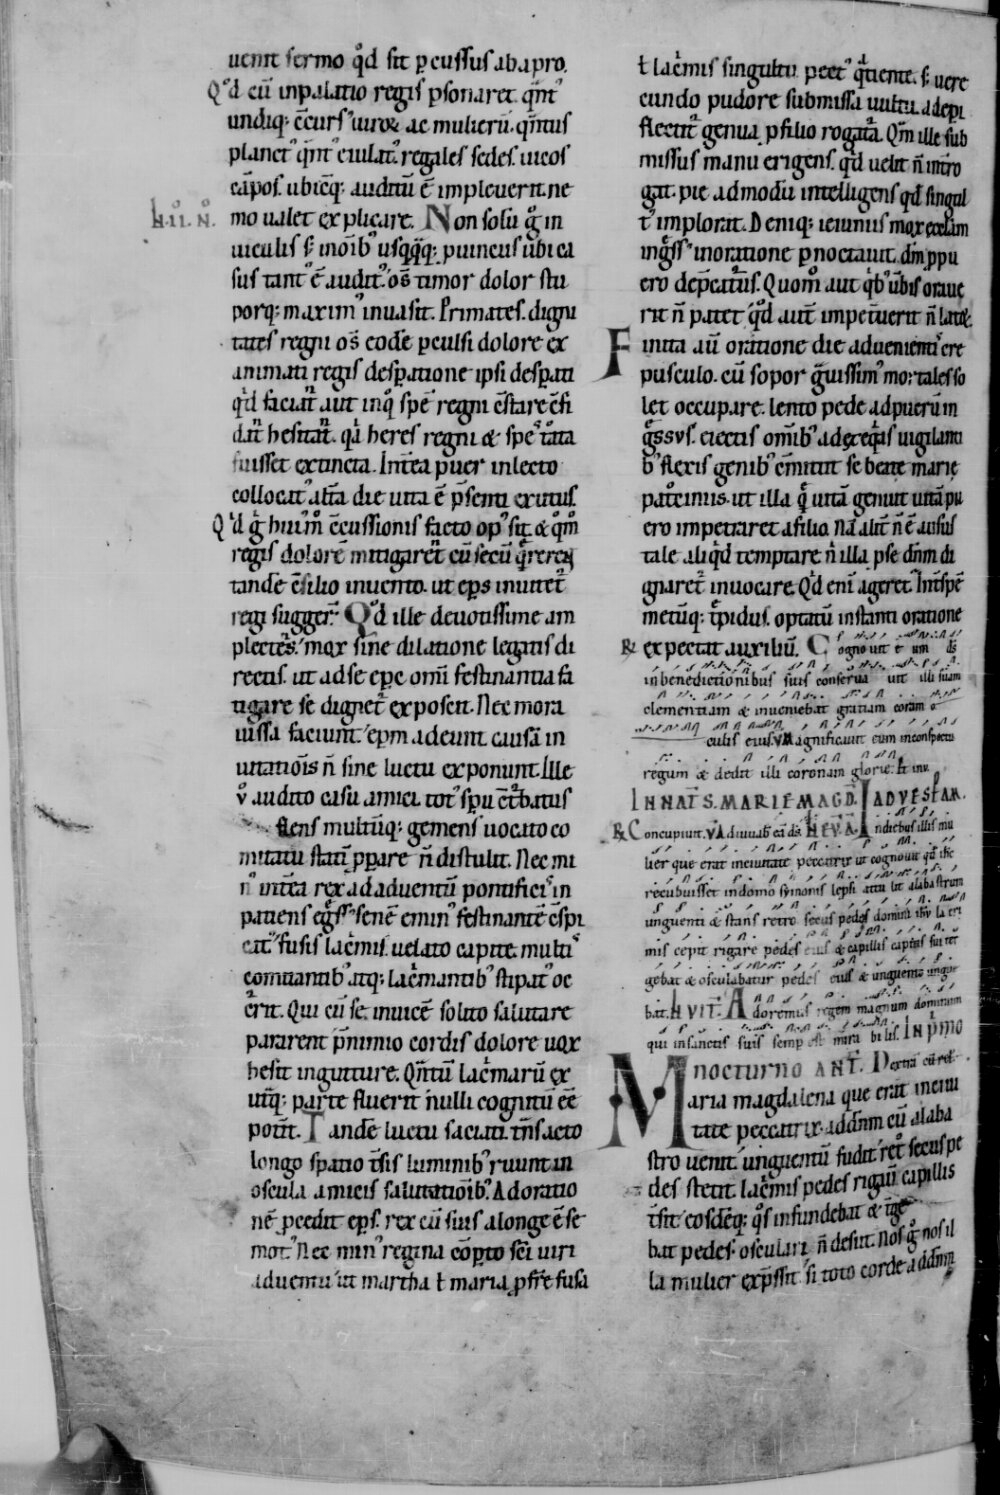 uenit sermo qͦd sit ꝑcussus ab apro.
Qͦd cū in palatio regis ꝑsonaret. qͣntꝰ
undiqꝫ c̄cursꝰ uiroꝝ ac mulierū. qͣntus
planctꝰ qͣntꝰ eiulatꝰ. regales sedes. uicos
cāpos. ubicūqꝫ auditū ē impleuerit. ne
mo ualet explicare. Non solū gͦ in
uiculis sꝫ in oīb usqꝫ puincus ubi ca
sus tantꝰ ē auditꝰ. os̄ timor dolor stu
porqꝫ maximꝰ inuasit. Primates. digni
tates regni os̄ eodē ꝑculsi dolore ex
animati regis desꝑatione ipsi desꝑati
qͥd faciāt aut in qͦ spē regni c̄stare c̄fi
dāt hesitāt. qͥ heres regni & spes tota
fuisset extincta. Intēa puer in lecto
collocatꝰ alt̄a die uita ē p̄senti exutus.
Qͥd gͥ huiꝰmͦ c̄cussionis facto opꝰ sit & qͦmͦ
regis dolorē mitigarēt cū secū qͣrerēt
tandē c̄silio inuento. ut ep̄s inuitet̄
regi sugger̄. Qͦd ille deuotissime am
plectēs. mox sine dilatione legatis di
rectis. ut ad se ep̄c omī festinantia fa
tigare se dignet̄ exposcit. Nec mora
iussa faciunt. ep̄m adeunt causā in
uitatiōis n̄ sine luctu exponunt. Ille
ṽ audito casu amici totꝰ sp̄u c̄t̄batus
flens multūqꝫ gemens uocato co
mitatu statī p̄pare n̄ distulit. Nec mi
nꝰ int̄ea rex ad aduentū pontificis in
patiens eg̊ssꝰ senē eminꝰ festinantē c̄spi
catꝰ fusis lac̄mis. uelato capite multis
comitantib atqꝫ lac̄mantib stipatꝰ oc
c̄rit. Qui cū se inuicē solito salutare
pararent p̄ nimio cordis dolore uox
hesit in gutture. Qͣntū lac̄marū ex
utͣqꝫ parte fluerit nulli cognitū eē
pot̄it. Tandē luctu saciati. tn̄sacto
longo spatio t̄sis luminib ruunt in
oscula amicis salutatiōib. Ad oratio
nē p̄cedit ep̄s. rex cū suis a longe ē se
motꝰ. Nec minꝰ regina cōp̄to sc̄i uiri
aduentu ut martha ł maria ꝓ fr̄e fusa
ł lac̄mis singultu pect qͣtiente. sꝫ uere
cundo pudore submissa uultu. ad ep̄i
flectit̄ genua. ꝑ filio rogat̄a. Qm̄ ille sub
missus manu erigens. qͥd uelit n̄ int̄ro
gat. pie admodū intelligens qͥd singul
tꝰ implorat. Deniqꝫ ieiunus mox ecclām
ing̊ssꝰ in oratione ꝑnoctauit. dm̄ ꝓ pu
ero dep̄catus. Quomͦ aut qͥb ūbis oraue
rit n̄ patet. qͥd aut̄ impet̄uerit n̄ latet.
Finita aū oratione die adueniente cre
pusculo. cū sopor gͣuissimꝰ mortales so
let occupare. lento pede ad puerū in
g̊ssus. eiectis om̄ib ad exeqͥas uigilanti
b flexis genib c̄mitit se beate marie
patrocinus. ut illa qͣ uitā genuit uitā pu
ero impetraret a filio. Nā alit̄ n̄ ē ausus
tale aliqͥd temptare nͥ illa p se dn̄m di
gnaret̄ inuocare. Qͥd eni ageret. Int̄ spē
metūqꝫ t̄pidus. optatū instanti oratione
℟ expectat auxiliū. Cognouit eum ds̄
in benedictionibus suis conserua uit illi suam
clementiam & inueniebat gratiam coram o
culis eius. V Magnificauit eum in conspectu
regum & dedit illi coronam glorie. Et inu.
IN NAT̄ S. MARIE MAGD. AD VESPAR.
℟ Concupiuit. V Adiuuab eā ds̄. H EVA. In diebus illis mu
lier que erat in ciuitate peccatrix ut cognouit qd̄ ihc̄
recubuisset in domo symonis leprosi attu lit alabastrum
unguenti & stans retro secus pedes domini ihū lacri
mis cepit rigare pedes eius & capillis capitis sui ter
gebat & osculabatur pedes eius & unguento ungue
bat. INVIT. Adoremus regem magnum dominum
qui in sanctis suis semper est mira bilis. IN Pͥ̄MO
NOCTURNO ANT. Dextra cū rel.
Maria magdalena que erat in ciui
tate peccatrix. ad dn̄m cū alaba
stro uenit. unguentū fudit. retͦ secus pe
des stetit. lac̄mis pedes rigauit capillis
t̄sit eosdēqꝫ qͦs infundebat & t̄ge
bat pedes. osculari n̄ desiit. Nos gͦ nos il
la mulier exp̄ssit. si toto corde ad dn̄m
H. II. Nͦ.